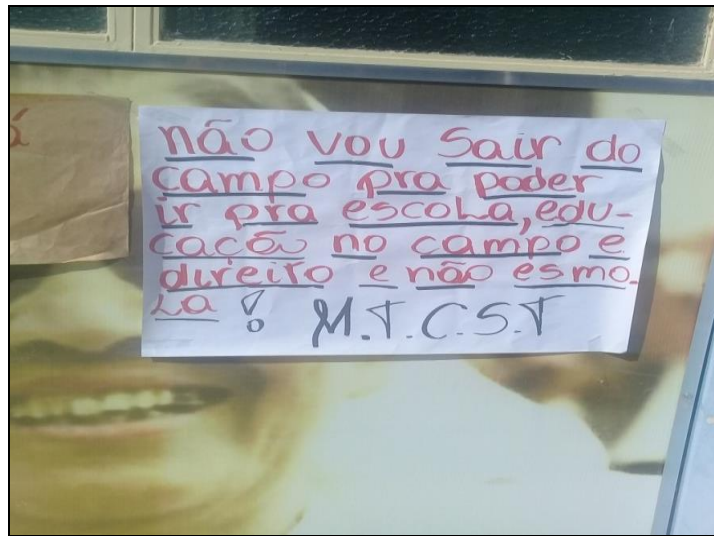 á
não vou Sair do
campo pra poder
ir pra escola, edu-
cação no campo e
direito e não esmo-
la! M.T.C.S.T